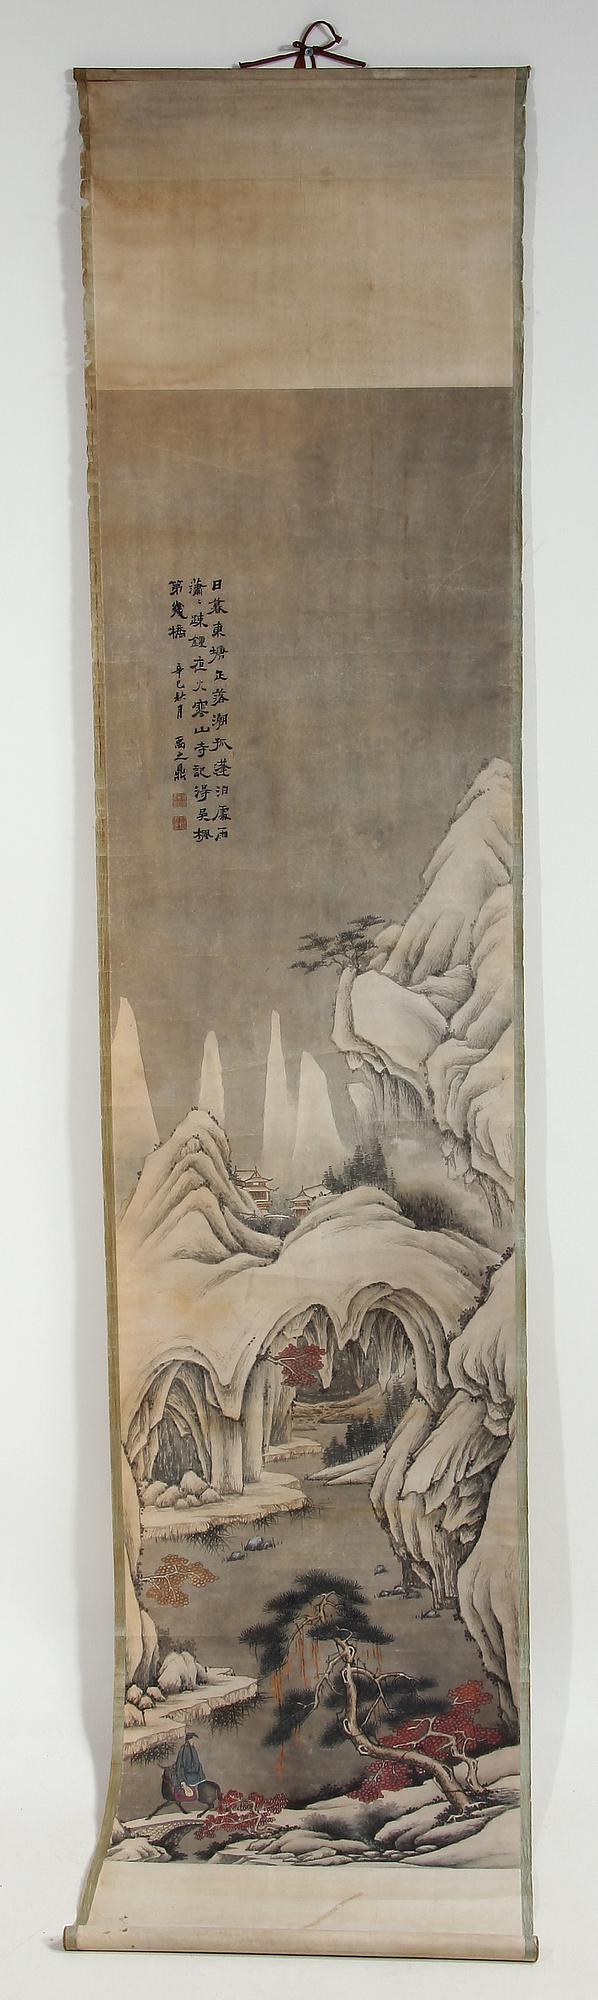 日暮東塘正落潮孤蓬泊處雨
瀟〻疎鐘夜火寒山寺記得吳楓
第幾橋
辛巳秋月 禹之鼎